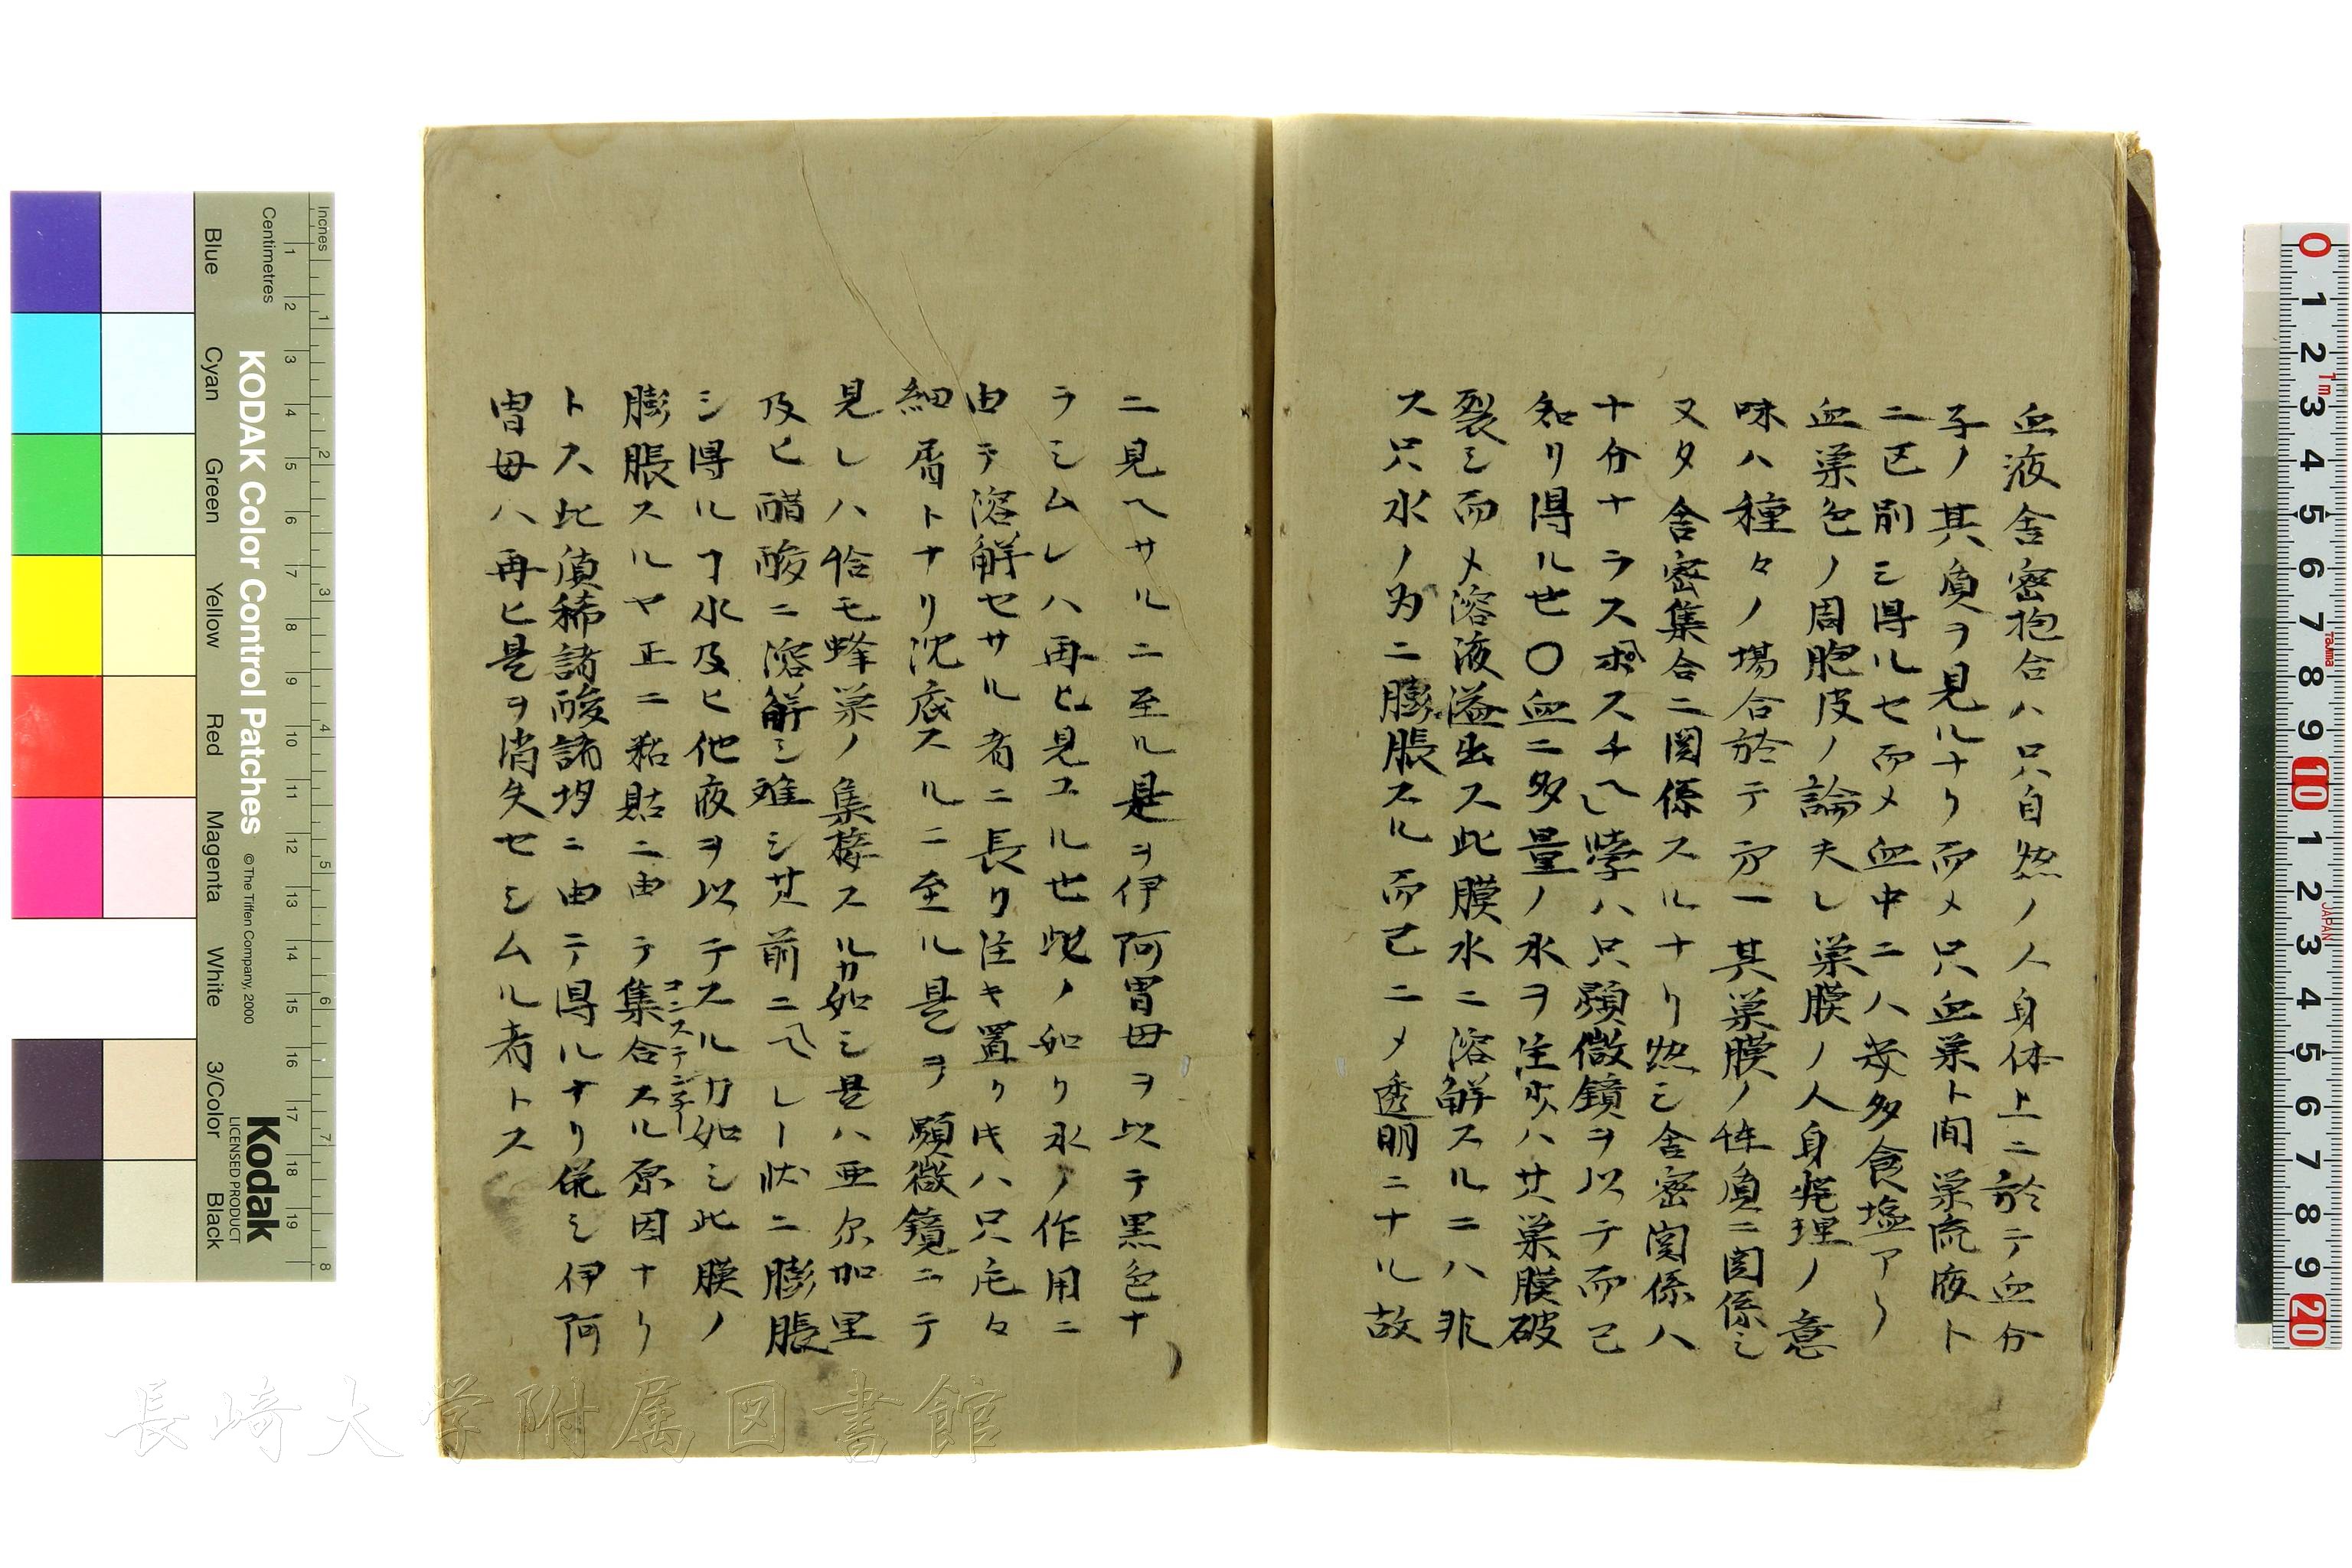 血液舎密抱合ハ只自然ノ人身体上ニ於テ血分
子ノ其質ヲ見ルナリ而メ只血巣ト間巣流液ト
ニ区別シ得ルセ而メ血中ニハ幾多食塩アリ
血巣色ノ周胞皮ノ論夫レ巣膜ノ人身究理ノ意
味ハ種々ノ場合於テ第一其巣膜ノ性質ニ関係シ
又タ舎密集合ニ関係スルナリ然シ舎密関係ハ
十分ナラス スチヘし学ハ只顕微鏡ヲ以テ而己
知リ得ル也〇血ニ多量ノ水ヲ注クハ其巣膜破
裂シ而メ溶液溢出ス此膜水ニ溶解スルニハ非
ス只水ノ為ニ膨脹スル而已ニメ透明ニナル故
ニ見ヘサルニ至ル是ヲ伊阿冑母ヲ以テ黒色ナ
ラシムレハ再ヒ見ユル也此ノ如ク水ノ作用ニ
由テ溶解セサル者ニ長ク注キ置ク時ハ只元々
細屑トナリ沈底スルニ至ル是ヲ顕微鏡ニテ
見レハ恰モ蜂巣ノ集接スルカ如シ是ハ亜尓加里
及ヒ醋酸ニ溶解シ難シ其前ニ 状ニ膨脹
シ得ルヿ水及ヒ他液ヲ以テスルカ如シ此膜ノ
膨脹スルヤ正ニ粘貼ニ由テ集合スル原因ナリ
コンステンチー
トス此質稀諸酸諸塩ニ由テ得ルナリ併シ伊阿
冑母ハ再ヒ是ヲ消失セシムル者トス
KODAK Color Control Patches
© The Tiffen Company, 2000
Kodak
LICENSED PRODUCT
Inches
Centimetres
Blue
Cyan
Green
Yellow
Red
Magenta
White
3/Color
Black
長崎大学附属図書館